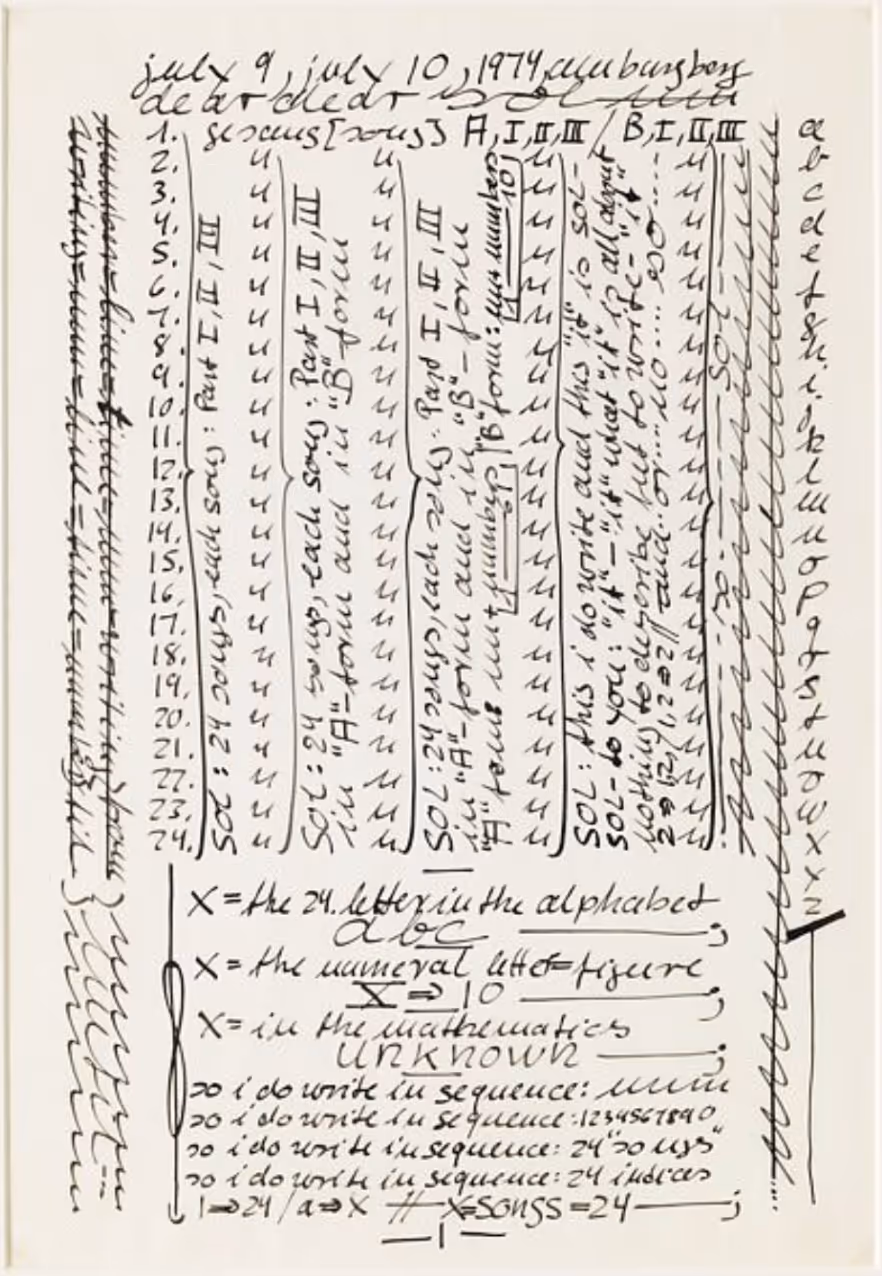 july 9, july 10, 1974, am burgberg
dear dear sol
1. gesang [song] A, I, II, III / B, I, II, III
2. " " " " "
3. " " " " "
4. " " " " "
5. " " " " "
6. " " " " "
7. " " " " "
8. " " " " "
9. " " " " "
10. " " " " "
11. " " " " "
12. " " " " "
13. " " " " "
14. " " " " "
15. " " " " "
16. " " " " "
17. " " " " "
18. " " " " "
19. " " " " "
20. " " " " "
21. " " " " "
22. " " " " "
23. " " " " "
24. " " " " "
SOL : 24 songs, each song : Part I, II, III
SOL : 24 songs, each song : Part I, II, III
in "A"-form and in "B"-form
SOL : 24 songs, each song : Part I, II, III
in "A"-form and in "B"-form
"A" form "B" form :
SOL : this i do write and this "it" is SOL-
SOL- to you : "it" - "it" what "it" is all about
nothing to describe but to write - "it"
and.. or.... no.... so....
a
b
c
d
e
f
g
h
i
j
k
l
m
n
o
p
q
r
s
t
u
v
w
x
y
z
X = the 24. letter in the alphabet
abc ;
X = the numeral letter=figure
X ⇒ 10 ;
X = in the mathematics
unknown ;
so i do write in sequence:
so i do write in sequence: 1234567890
so i do write in sequence: 24 "songs"
so i do write in sequence: 24 indices
1⇒24 / a⇒X // X=songs=24 ;
— 1 —